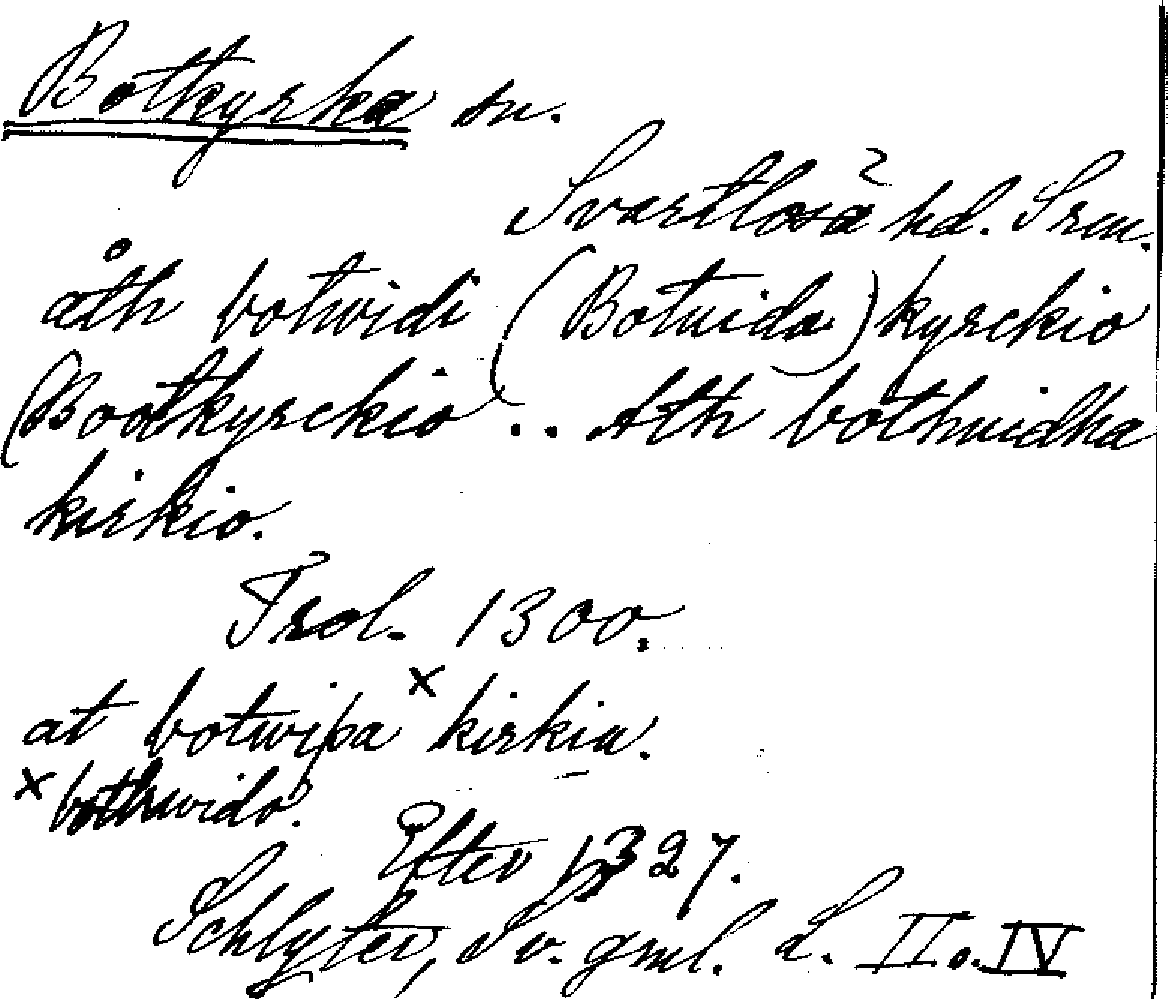 Botkyrka sn.
Svartlösa hd. Srm.
åth botwidi (Botuida) kyrckio
(Bootkyrckio . . Ath bothuidha
kirkio.
Trol. 1300.
at botwiþa x kirkiu.
x bothwida.
Efter 1327.
Schlyter, Sv. gml. L. II o. IV